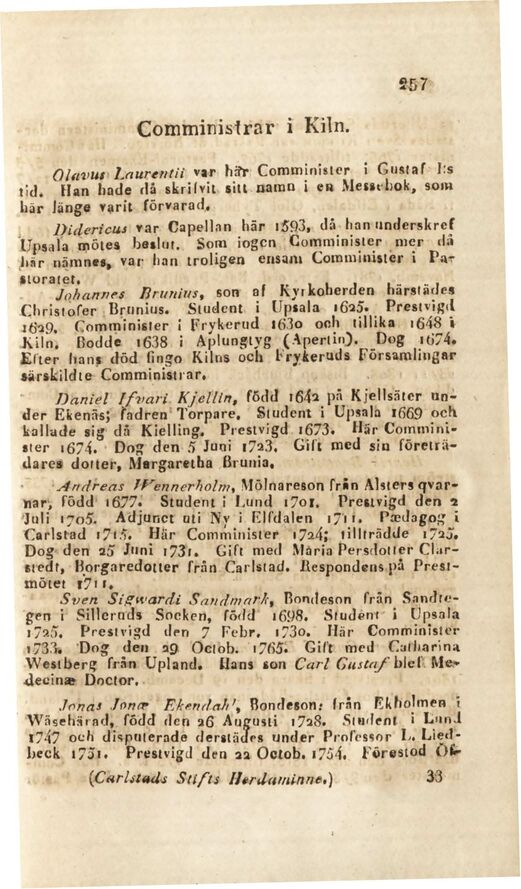 257
Comministrar i Kiln.
Olavus Laurentii var här Comminister i Gustaf I:s
tid. Han hade då skrifvit sitt namn i en Messebok, som
här länge varit förvarad.
Didericus var Capellan här 1593, då han underskref
Upsala mötes beslut. Som ingen Comminister mer då
här nämnes, var han troligen ensam Comminister i Pa-
storatet.
Johannes Brunius, son af Kyrkoherden härstädes
Christofer Brunius. Student i Upsala 1625. Prestvigd
1629. Comminister i Frykerud 1630 och tillika 1648 i
Kiln. Bodde 1638 i Aplungtyg (Apertin). Dog 1674.
Efter hans död fingo Kilns och Frykeruds Församlingar
särskildte Comministrar.
Daniel Ifvari Kjellin, född 1642 på Kjellsäter un-
der Ekenäs; fadren Torpare. Student i Upsala 1669 och
kallade sig då Kielling. Prestvigd 1673. Här Commini-
ster 1674. Dog den 5 Juni 1723. Gift med sin företrä-
dares dotter, Margaretha Brunia.
Andreas Wennerholm, Mölnareson från Alsters qvar-
nar, född 1677. Student i Lund 1701. Prestvigd den 2
Juli 1705. Adjunct uti Ny i Elfdalen 1711. Pædagog i
Carlstad 1715. Här Comminister 1724; tillträdde 1725.
Dog den 25 Juni 1731. Gift med Maria Persdotter Clar-
stedt, Borgaredotter från Carlstad. Respondens på Prest-
mötet 1711.
Sven Sigwardi Sandmark, Bondeson från Sandte-
gen i Sillerods Socken, född 1698. Student i Upsala
1725. Prestvigd den 7 Febr. 1730. Här Comminister
1733. Dog den 29 Octob. 1765. Gift med Catharina
Westberg från Upland. Hans son Carl Gustaf blef Me-
decinæ Doctor.
Jonas Jonæ Ekendahl, Bondeson från Ekholmen i
Wäsehärad, född den 26 Augusti 1728. Student i Lund
1747 och disputerade derstädes under Professor L. Lied-
beck 1751. Prestvigd den 22 Octob. 1754. Förestod Öl-
(Carlstads Stifts Herdaminne.) 33